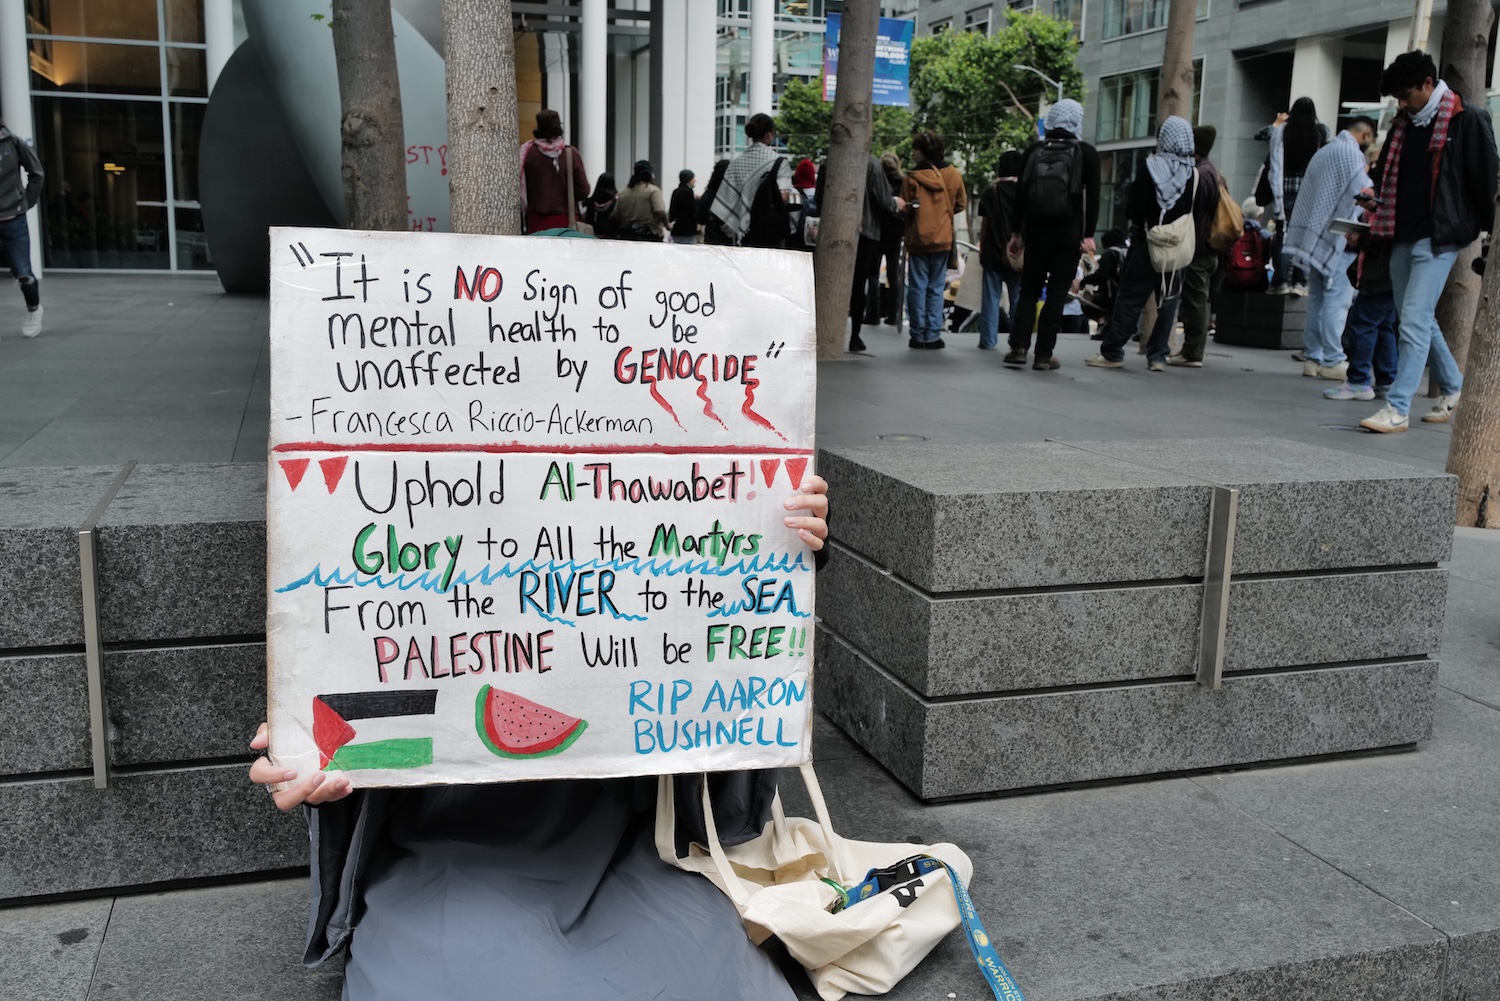 "It is NO Sign of good
mental health to be
unaffected by GENOCIDE"
-Francesca Riccio-Ackerman
Uphold Al-Thawabet!
Glory to All the Martyrs
From the RIVER to the SEA
PALESTINE Will be FREE!!
RIP AARON
BUSHNELL
ST!
HT
WARRIORS